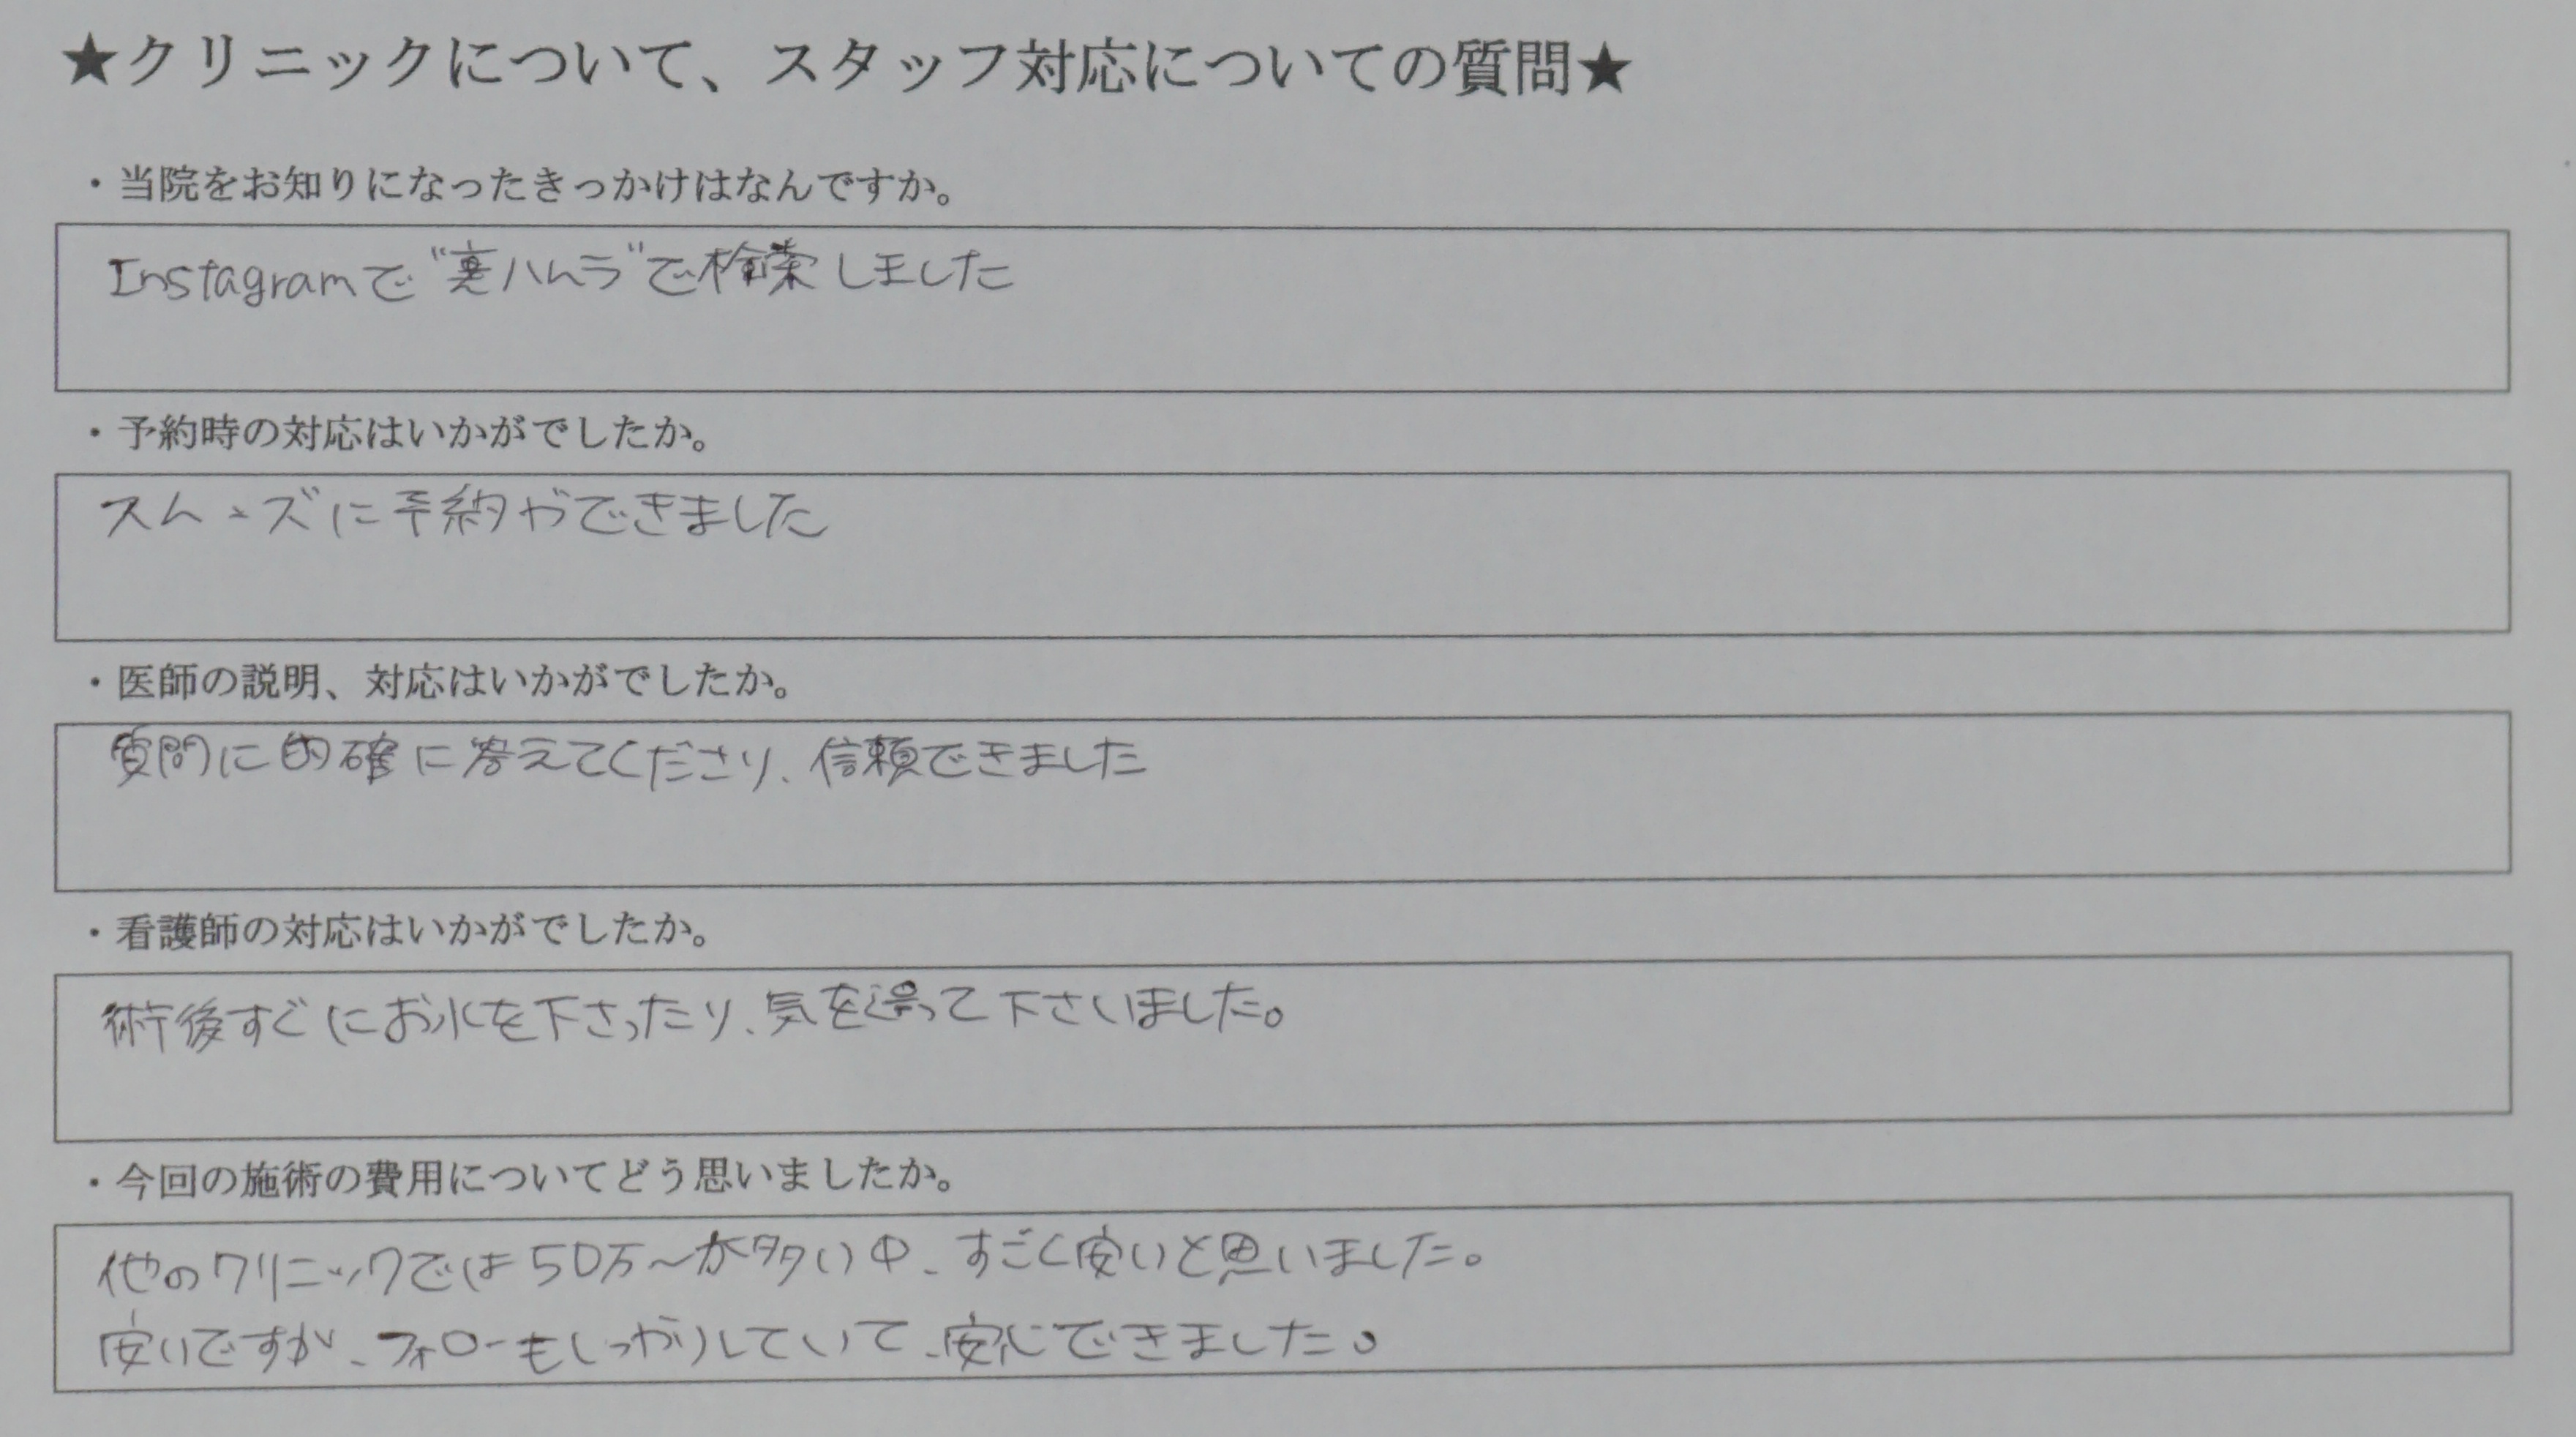 ★クリニックについて、スタッフ対応についての質問★
・当院をお知りになったきっかけはなんですか。
Instagramで"裏ハムラ"で検索しました
・予約時の対応はいかがでしたか。
スムーズに予約ができました
・医師の説明、対応はいかがでしたか。
質問に的確に答えてくださり、信頼できました
・看護師の対応はいかがでしたか。
術後すぐにお水を下さったり、気を遣って下さいました。
・今回の施術の費用についてどう思いましたか。
他のクリニックでは50万〜が多い中、すごく安いと思いました。
安いですが、フォローもしっかりしていて、安心できました。